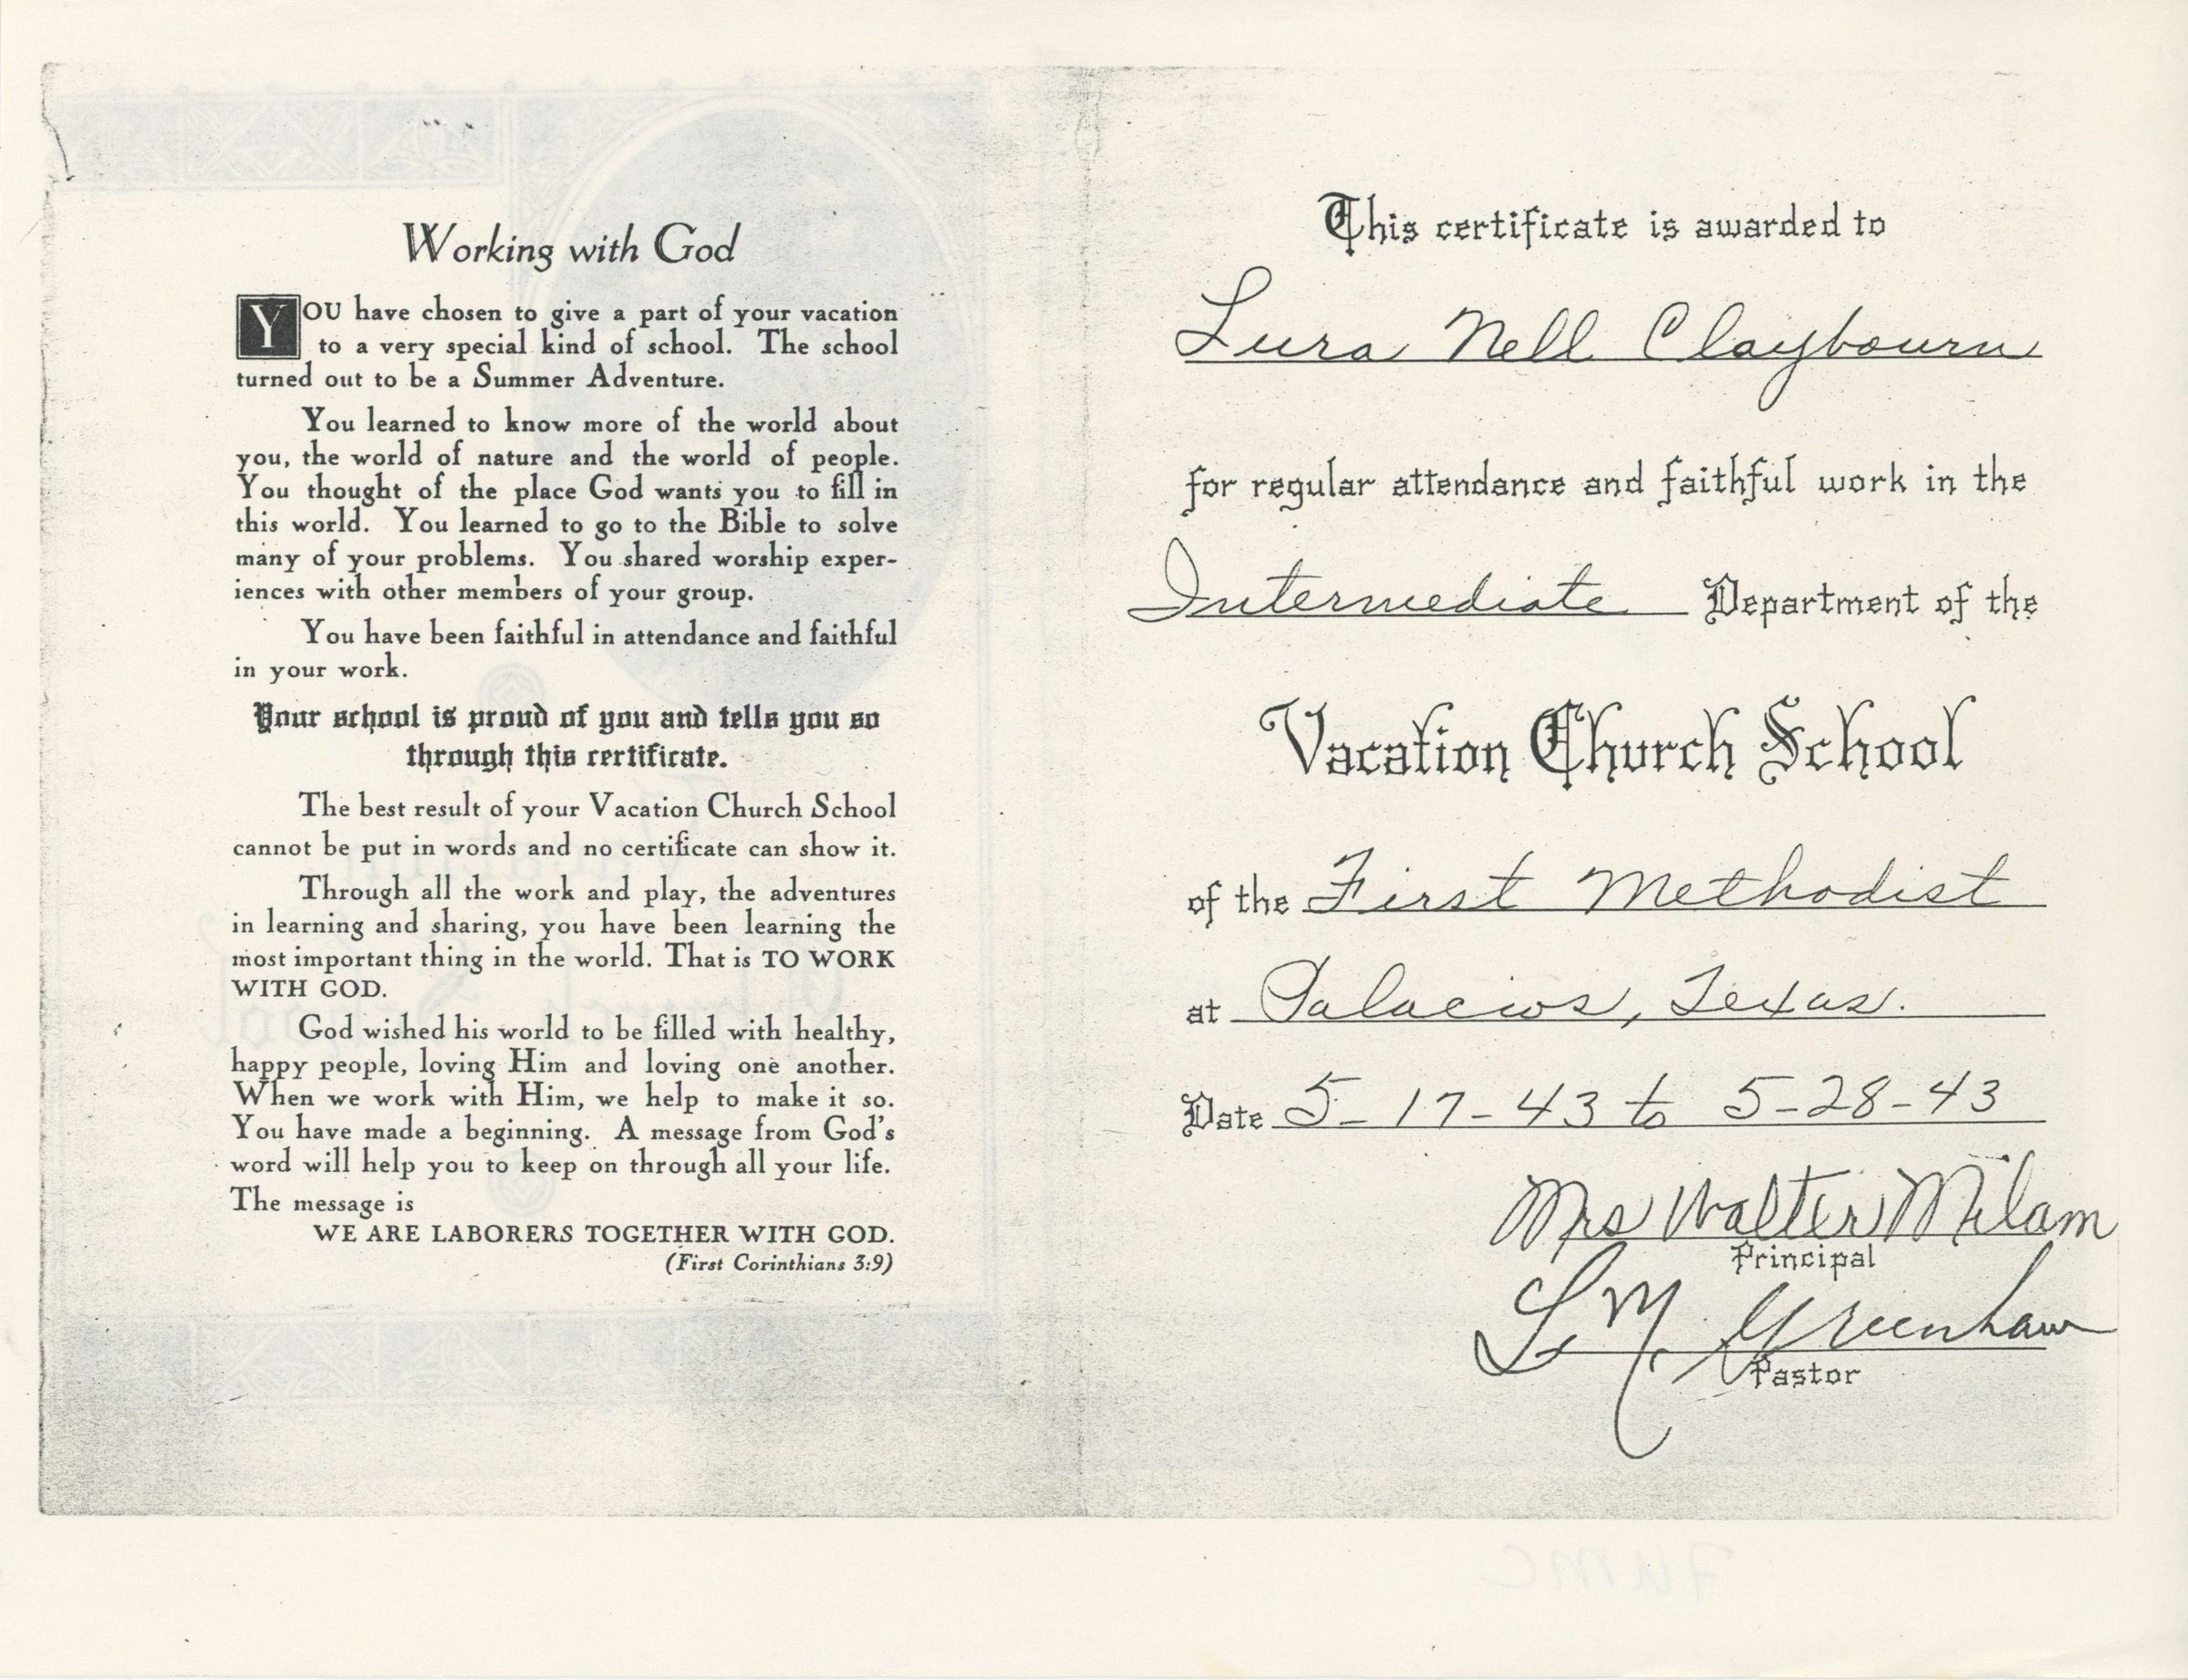 Working with God
YOU have chosen to give a part of your vacation
to a very special kind of school. The school
turned out to be a Summer Adventure.
You learned to know more of the world about
you, the world of nature and the world of people.
You thought of the place God wants you to fill in
this world. You learned to go to the Bible to solve
many of your problems. You shared worship exper-
iences with other members of your group.
You have been faithful in attendance and faithful
in your work.
Your school is proud of you and tells you so
through this certificate.
The best result of your Vacation Church School
cannot be put in words and no certificate can show it.
Through all the work and play, the adventures
in learning and sharing, you have been learning the
most important thing in the world. That is TO WORK
WITH GOD.
God wished his world to be filled with healthy,
happy people, loving Him and loving one another.
When we work with Him, we help to make it so.
You have made a beginning. A message from God's
word will help you to keep on through all your life.
The message is
WE ARE LABORERS TOGETHER WITH GOD.
(First Corinthians 3:9)
This certificate is awarded to
Lura Nell Claybourn
for regular attendance and faithful work in the
Intermediate Department of the
Vacation Church School
of the First Methodist
at Palacios, Texas.
Date 5-17-43 to 5-28-43
Mrs Walter Milam
Principal
L. M. Greenhaw
Pastor
FUMC